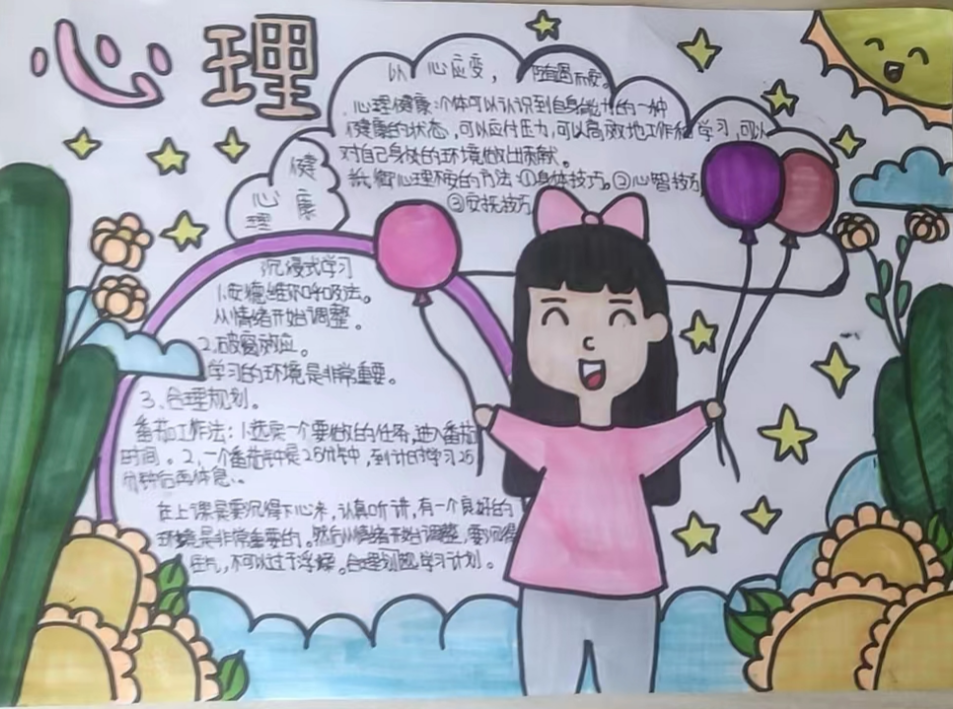 心理
以心应变，随遇而安。
心理健康：个体可以认识到自身能力的一种
健康的状态，可以应付压力，可以高效地工作和学习，可以
对自己身处的环境做出贡献。
抵御心理不安的方法：①身体技巧。②心智技巧
③安抚技巧
心理健康
沉浸式学习
1.安德维尔呼吸法。
从情绪开始调整。
2.破窗效应。
学习的环境是非常重要。
3.合理规划。
番茄工作法：1.选定一个要做的任务，进入番茄
时间。2.一个番茄钟是25分钟，倒计时学习25
分钟后再休息。
在上课是要沉得下心来，认真听讲，有一个良好的
环境是非常重要的。然后从情绪开始调整，要沉得
住气，不可以过于浮躁。合理规划学习计划。